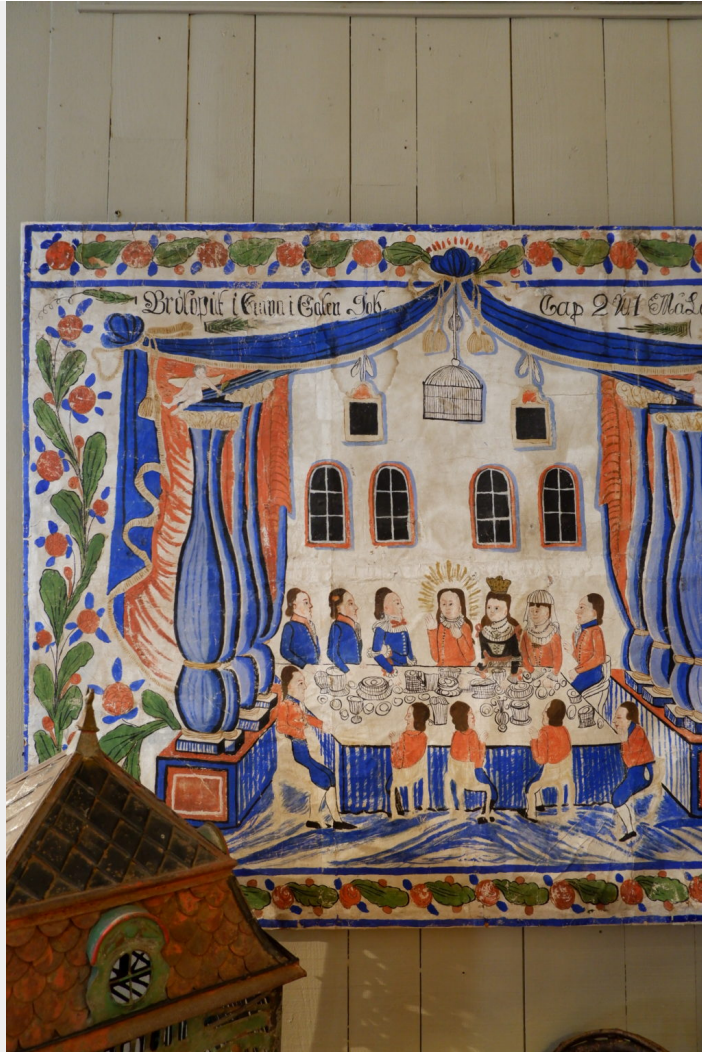 Brölopit i Cana i Galen Joh Cap 2 V 1